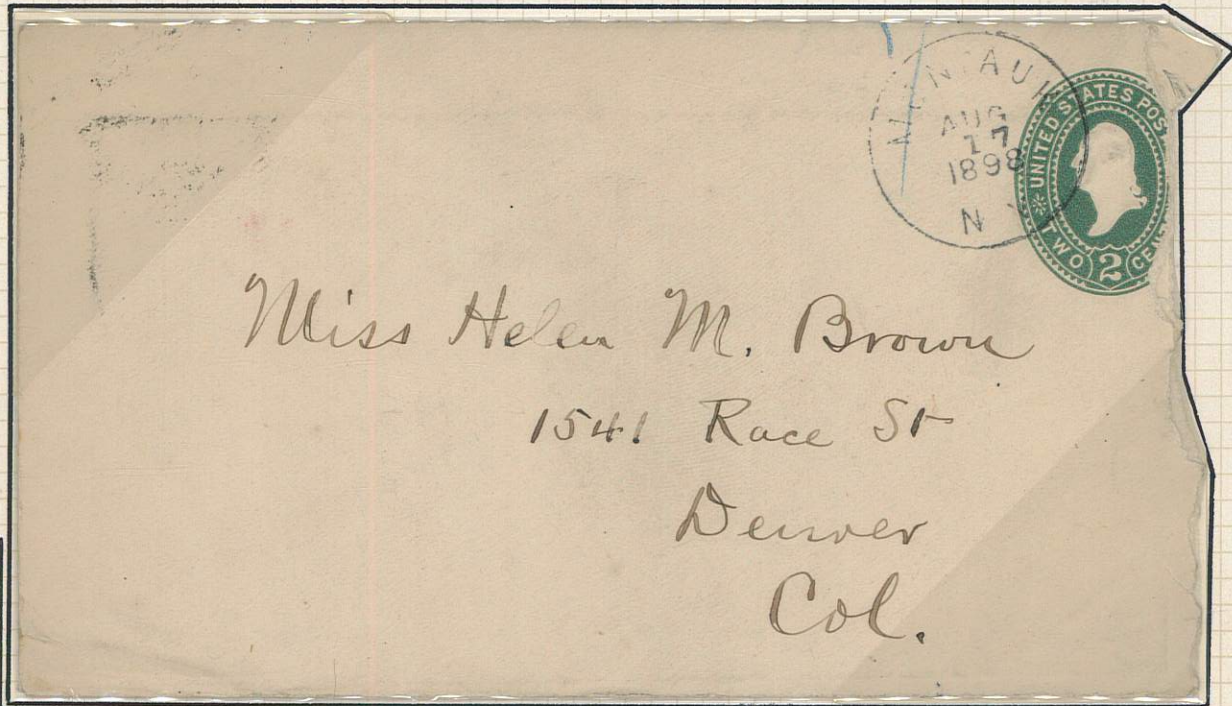 MONTAUK
AUG
17
1898
N Y
UNITED STATES POS
TWO 2 CENT
Miss Helen M. Brown
1541 Race St
Denver
Col.